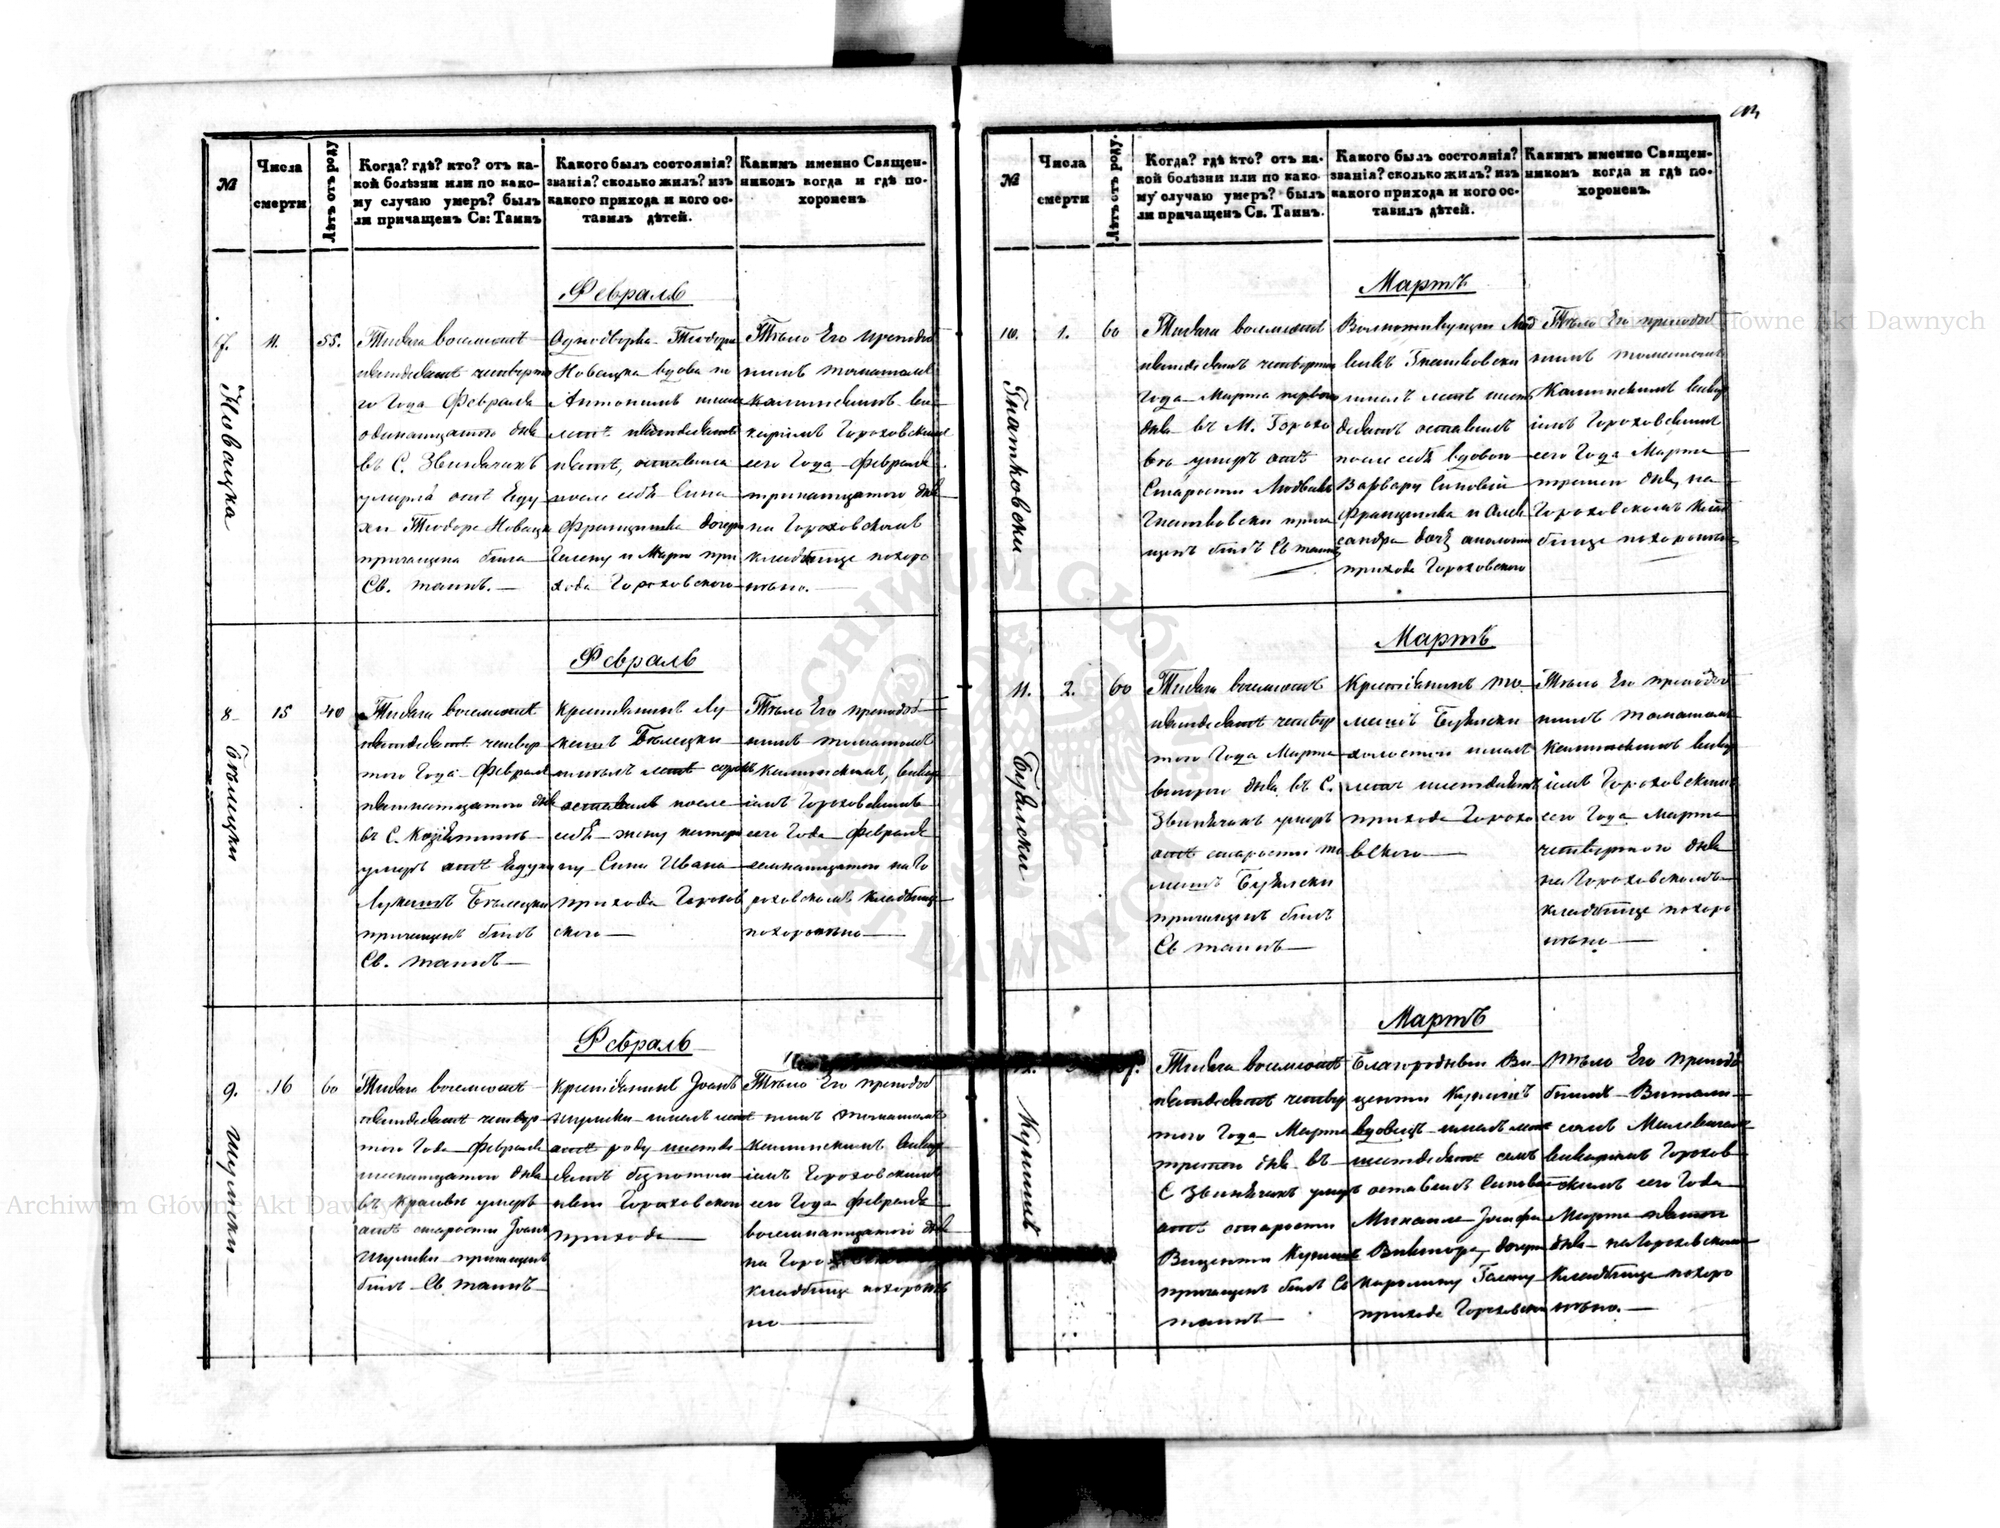 №
Числа
смерти
Лѣтъ отъ роду
Когда? гдѣ? кто? отъ ка-
кой болѣзни или по како-
му случаю умеръ? былъ
ли причащенъ Св: Таинъ
Какого былъ состоянія?
званія? сколько жилъ? изъ
какого прихода и кого ос-
тавилъ дѣтей.
Какимъ именно Священ-
никомъ когда и гдѣ по-
хороненъ
Февраль
7.
11.
55.
Новацка
Тысяча восемсотъ
пятдесятъ четверта
го Года Февраля
одинатцатого дня
въ С. Звинячахъ
умерла отъ
Теодора Новацка
причащена была
Св. таинъ.—
Однодворка Теодора
Новацка вдова по
Антонимъ
летъ пятдесятъ
пять, оставила
после себѣ Сина
Францишка дочери
Галену и Мари при
хода Гороховского
Тѣло Его преподоб
нимъ томашомъ
каминскимъ вика
ріимъ Гороховскимъ
сего Года Февраля
тринатцатого дня
на Гороховскомъ
кладбище похоро
нено.—
Февраль
8
15
40
Бѣлецки
Тысяча восемсотъ
пятдесятъ четвер
того Года Февраля
пятнатцатого дня
въ С.
умеръ отъ
Лукашъ Бѣлецки
причащенъ былъ
Св. таинъ—
Крестянинъ Лу
кашъ Бѣлецки
летъ сорокъ
оставилъ после
себѣ жену
ну Сина Ивана
прихода Горохов
ского—
Тѣло Его преподоб
нимъ томашомъ
каминскимъ, викар
іимъ Гороховскимъ
сего Года Февраля
семнатцатого на Го
роховскомъ кладбище
похоронено—
Февраль
9.
16
60
Шумски
Тысяча восемсотъ
пятдесятъ четвер
того Года Февраля
шеснатцатого дня
въ умеръ
отъ старости Іоанъ
Шумски причащенъ
былъ Св таинъ
Крестянинъ Іоанъ
Шумски имелъ летъ
отъ роду шестде
сятъ безпотом
ненъ Гороховского
прихода
Тѣло Его преподоб
нимъ томашомъ
каминскимъ викар
іимъ Гороховскимъ
сего Года Февраля
восемнатцатого дня
на
кладбище похороне
но
№
Числа
смерти
Лѣтъ отъ роду.
Когда? гдѣ кто? отъ ка-
кой болѣзни или по како-
му случаю умеръ? былъ
ли причащенъ Св. Таинъ.
Какого былъ состоянія?
званія? сколько жилъ? изъ
какого прихода и кого ос-
тавилъ дѣтей.
Какимъ именно Священ-
никомъ когда и гдѣ по-
хороненъ.
Мартъ
10.
1.
60
Гнатковски
Тысяча восемсотъ
пятдесятъ четвертого
Года Марта первого
дня въ М. Горохо
ве умеръ отъ
Старости Людвикъ
Гнатковски прича
щенъ былъ Св таинъ
Люд
викъ Гнатковски
имелъ летъ шест
десятъ оставилъ
после себѣ вдовою
Варвару Синовей
Францишка и Алек
сандра
прихода Гороховского
Тѣло Его преподоб
нимъ томашомъ
Каминскимъ викар
іимъ Гороховскимъ
сего Года Марта
третего дня на
Гороховскомъ клад
бище похоронено
Мартъ
11.
2.
60
Тысяча восемсотъ
пятдесятъ четвер
того Года Марта
второго дня въ С.
Звинячахъ умеръ
отъ старости то
машъ
причащенъ былъ
Св таинъ—
Крестянинъ то-
машъ
холостой имелъ
летъ шестдесятъ
прихода Горохо
вского—
Тѣло Его преподоб
нимъ томашомъ
Каминскимъ викар
іимъ Гороховскимъ
сего Года Марта
четвертого дня
на Гороховскомъ
кладбище похоро
нено—
Мартъ
Купишъ
Тысяча восемсотъ
пятдесятъ четвер
того Года Марта
третего дня въ
С Звинячахъ умеръ
отъ старости
Вицентій Купишъ
причащенъ былъ Св
таинъ—
Благородный Ви
центій Купишъ
вдовецъ имелъ летъ
шестдесятъ семъ
оставилъ Синовей
Михаила Іосифа
Виктора, дочери
каролину Галену
прихода Гороховского
тѣло Его преподо
бнимъ Витали
сомъ
викаріимъ Горохов
скимъ сего Года
Марта пятого
дня на Гороховскомъ
кладбище похоро
нено.—
Archiwum Główne Akt Dawnych
Archiwum Główne Akt Dawnych
ARCHIWUM GŁÓWNE AKT DAWNYCH